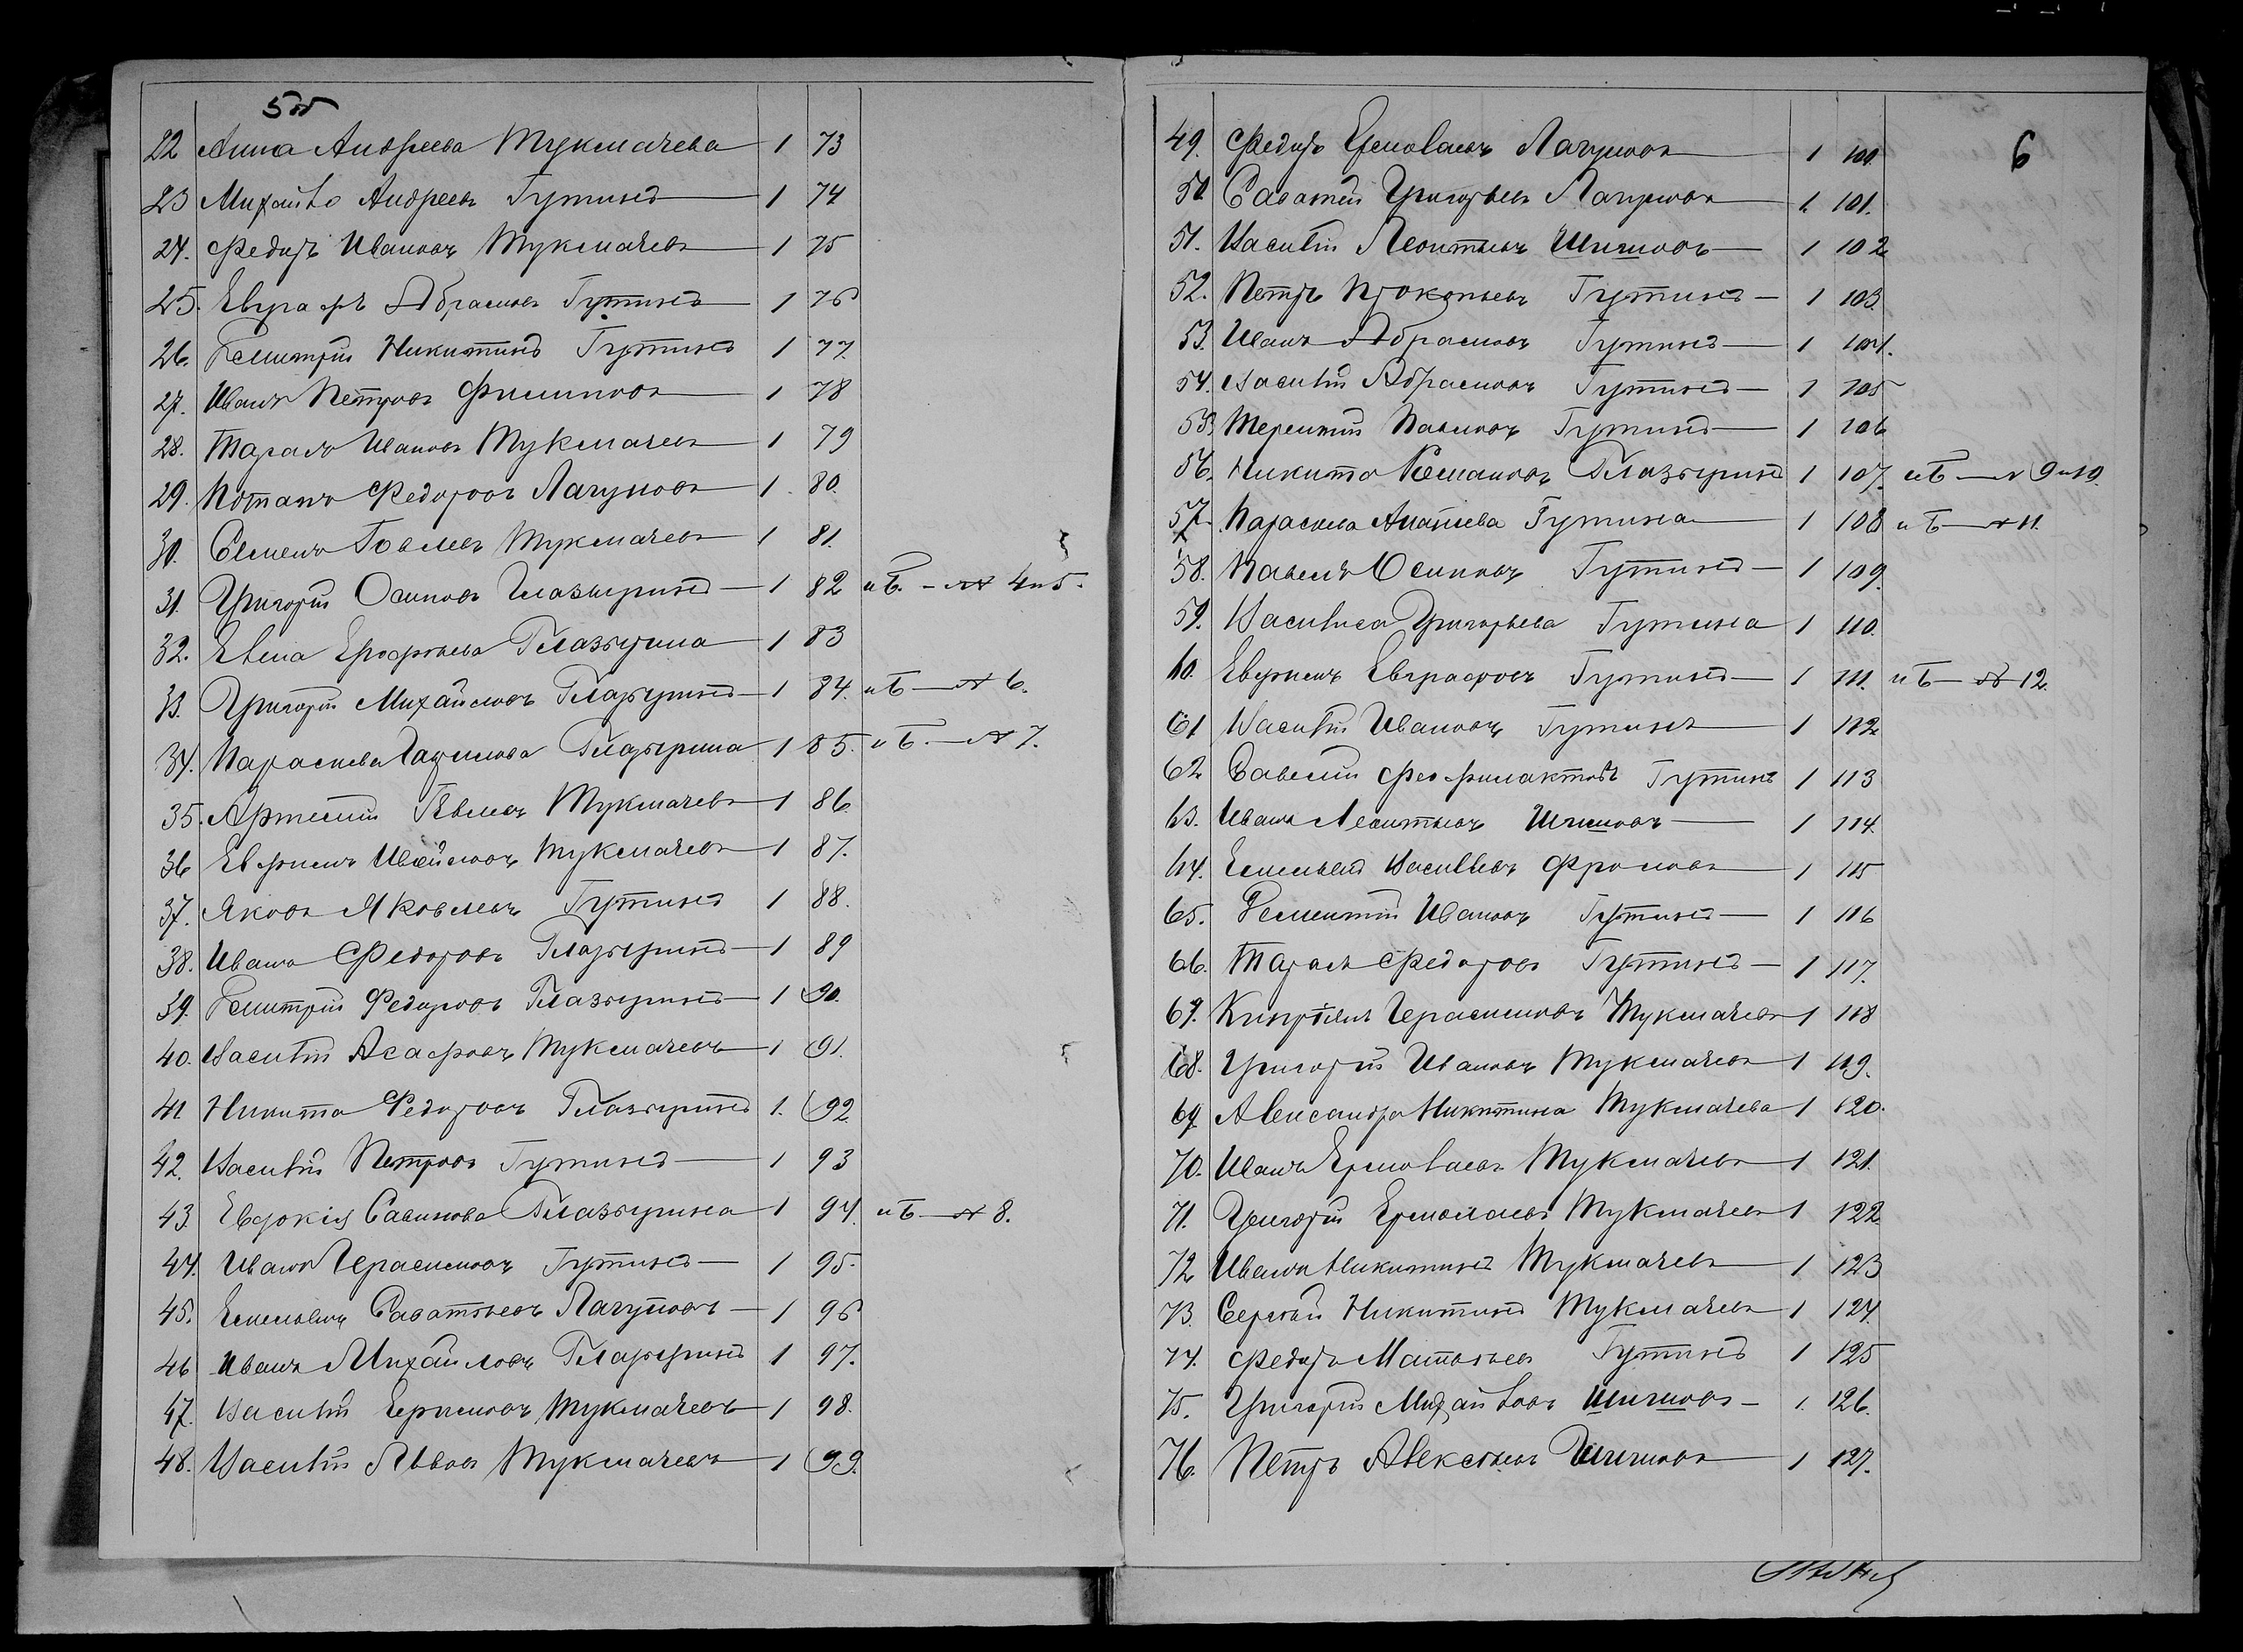 5об
22 Анна Андреева Тукмачева 1 73
23 Михайло Андреевъ Гутинъ 1 74
24. Федоръ Ивановъ Тукмачевъ 1 75
25. Евграфъ Абрамовъ Гутинъ 1 76
26. Дмитрій Никитинъ Гутинъ 1 77.
27. Иванъ Петровъ Филиповъ 1 78
28. Тарасъ Ивановъ Тукмачевъ 1 79
29. Потапъ Федоровъ Лагуновъ 1. 80.
30. Семенъ Іовлевъ Тукмачевъ 1 81.
31. Григорій Осиповъ Глазыринъ 1 82 иб. - № 4 и 5.
32. Елена Ерофѣева Глазырина 1 83
33. Григорій Михайловъ Глазыринъ 1 84. иб № 6.
34. Параскева Гаврилова Глазырина 1 85. иб. № 7.
35. Артемій Іовлевъ Тукмачевъ 1 86.
36 Евфимъ Тукмачевъ 1 87.
37. Яковъ Яковлевъ Гутинъ 1 88.
38. Иванъ Федоровъ Глазыринъ 1 89
39. Дмитрій Федоровъ Глазыринъ 1 90.
40. Василій Асафовъ Тукмачевъ 1 91.
41 Никита Федоровъ Глазыринъ 1. 92.
42. Василій Петровъ Гутинъ 1 93
43 Евдокія Савинова Глазырина 1 94. иб № 8.
44. Иванъ Герасимовъ Гутинъ 1 95.
45. Емельянъ Саватѣевъ Лагуновъ 1 96
46 Иванъ Михайловъ Глазыринъ 1 97.
47. Василій Тукмачевъ 1 98.
48. Василій Львовъ Тукмачевъ 1 99.
6
49. Федоръ Ермолаевъ Лагуновъ 1 100.
50. Саватей Григорьевъ Лагуновъ 1. 101.
51. Василій Леонтьевъ Шишовъ 1 102
52. Петръ Прокопьевъ Гутинъ 1 103.
53. Иванъ Абрамовъ Гутинъ 1 104.
54. Василій Абрамовъ Гутинъ 1 105
55. Терентій Павловъ Гутинъ 1 106
56. Никита Глазыринъ 1 107. иб № 9 и 10.
57. Параскева Ананьева Гутина 1 108 иб № 11.
58. Павелъ Осиповъ Гутинъ 1 109.
59. Василиса Григорьева Гутина 1 110.
60. Евфимъ Евграфовъ Гутинъ 1 111. иб № 12.
61 Василій Ивановъ Гутинъ 1 112
62 Савелій Феофилактовъ Гутинъ 1 113
63. Иванъ Леонтьевъ Шишовъ 1 114.
64. Емельянъ Васильевъ Фроловъ 1 115
65. Дементій Ивановъ Гутинъ 1 116
66. Тарасъ Федоровъ Гутинъ 1 117.
67. Кипріянъ Герасимовъ Тукмачевъ 1 118
68. Григорій Ивановъ Тукмачевъ 1 119.
69 Александра Никитина Тукмачева 1 120.
70. Иванъ Ермолаевъ Тукмачевъ 1 121.
71. Григорій Ермолаевъ Тукмачевъ 1 122
72 Иванъ Никитинъ Тукмачевъ 1 123
73. Сергѣй Никитинъ Тукмачевъ 1 124.
74. Федоръ Матвѣевъ Гутинъ 1 125
75. Григорій Михайловъ Шишовъ 1. 126.
76. Петръ Алексѣевъ Шишовъ 1 127.